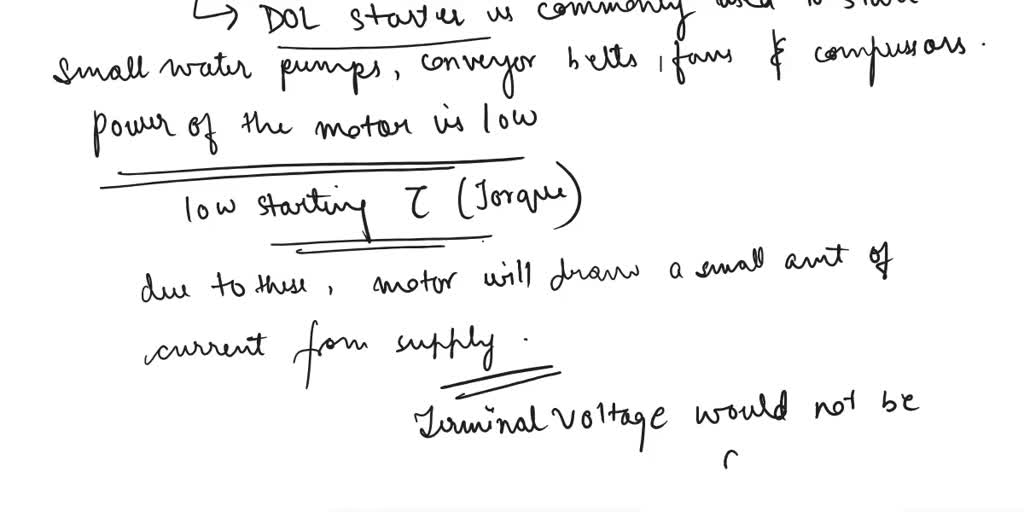 ↳ DOL starter is commonly used to start
small water pumps, conveyor belts, fans & compressors.
power of the motor is low
low starting τ (Torque)
due to these, motor will draw a small amt of
current from supply.
Terminal voltage would not be